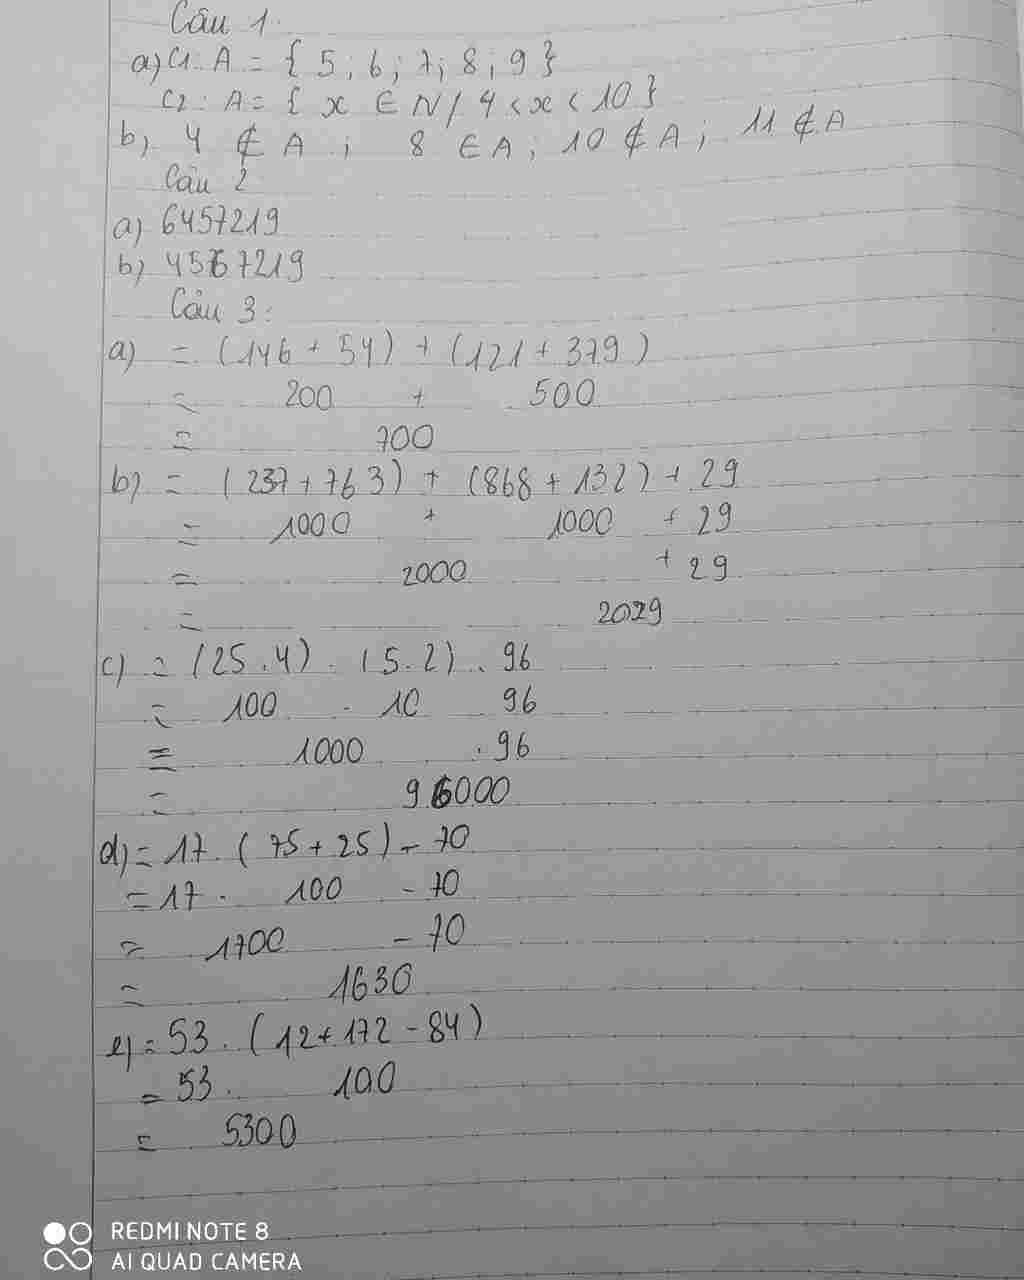 Câu 1
a) C1: A = { 5 ; 6 ; 7 ; 8 ; 9 }
C2 : A = { x ∈ N / 4 < x < 10 }
b) 4 ∉ A ; 8 ∈ A ; 10 ∉ A ; 11 ∉ A
Câu 2
a) 6457219
b) 4567219
Câu 3 :
a) = (146 + 54) + (121 + 379)
= 200 + 500
= 700
b) = (237 + 763) + (868 + 132) + 29
= 1000 + 1000 + 29
= 2000 + 29
= 2029
c) = (25 . 4) . (5 . 2) . 96
= 100 . 10 96
= 1000 . 96
= 96000
d) = 17 . ( 75 + 25 ) - 70
= 17 . 100 - 70
= 1700 - 70
= 1630
e) = 53 . ( 12 + 172 - 84 )
= 53 . 100
= 5300
REDMI NOTE 8
AI QUAD CAMERA